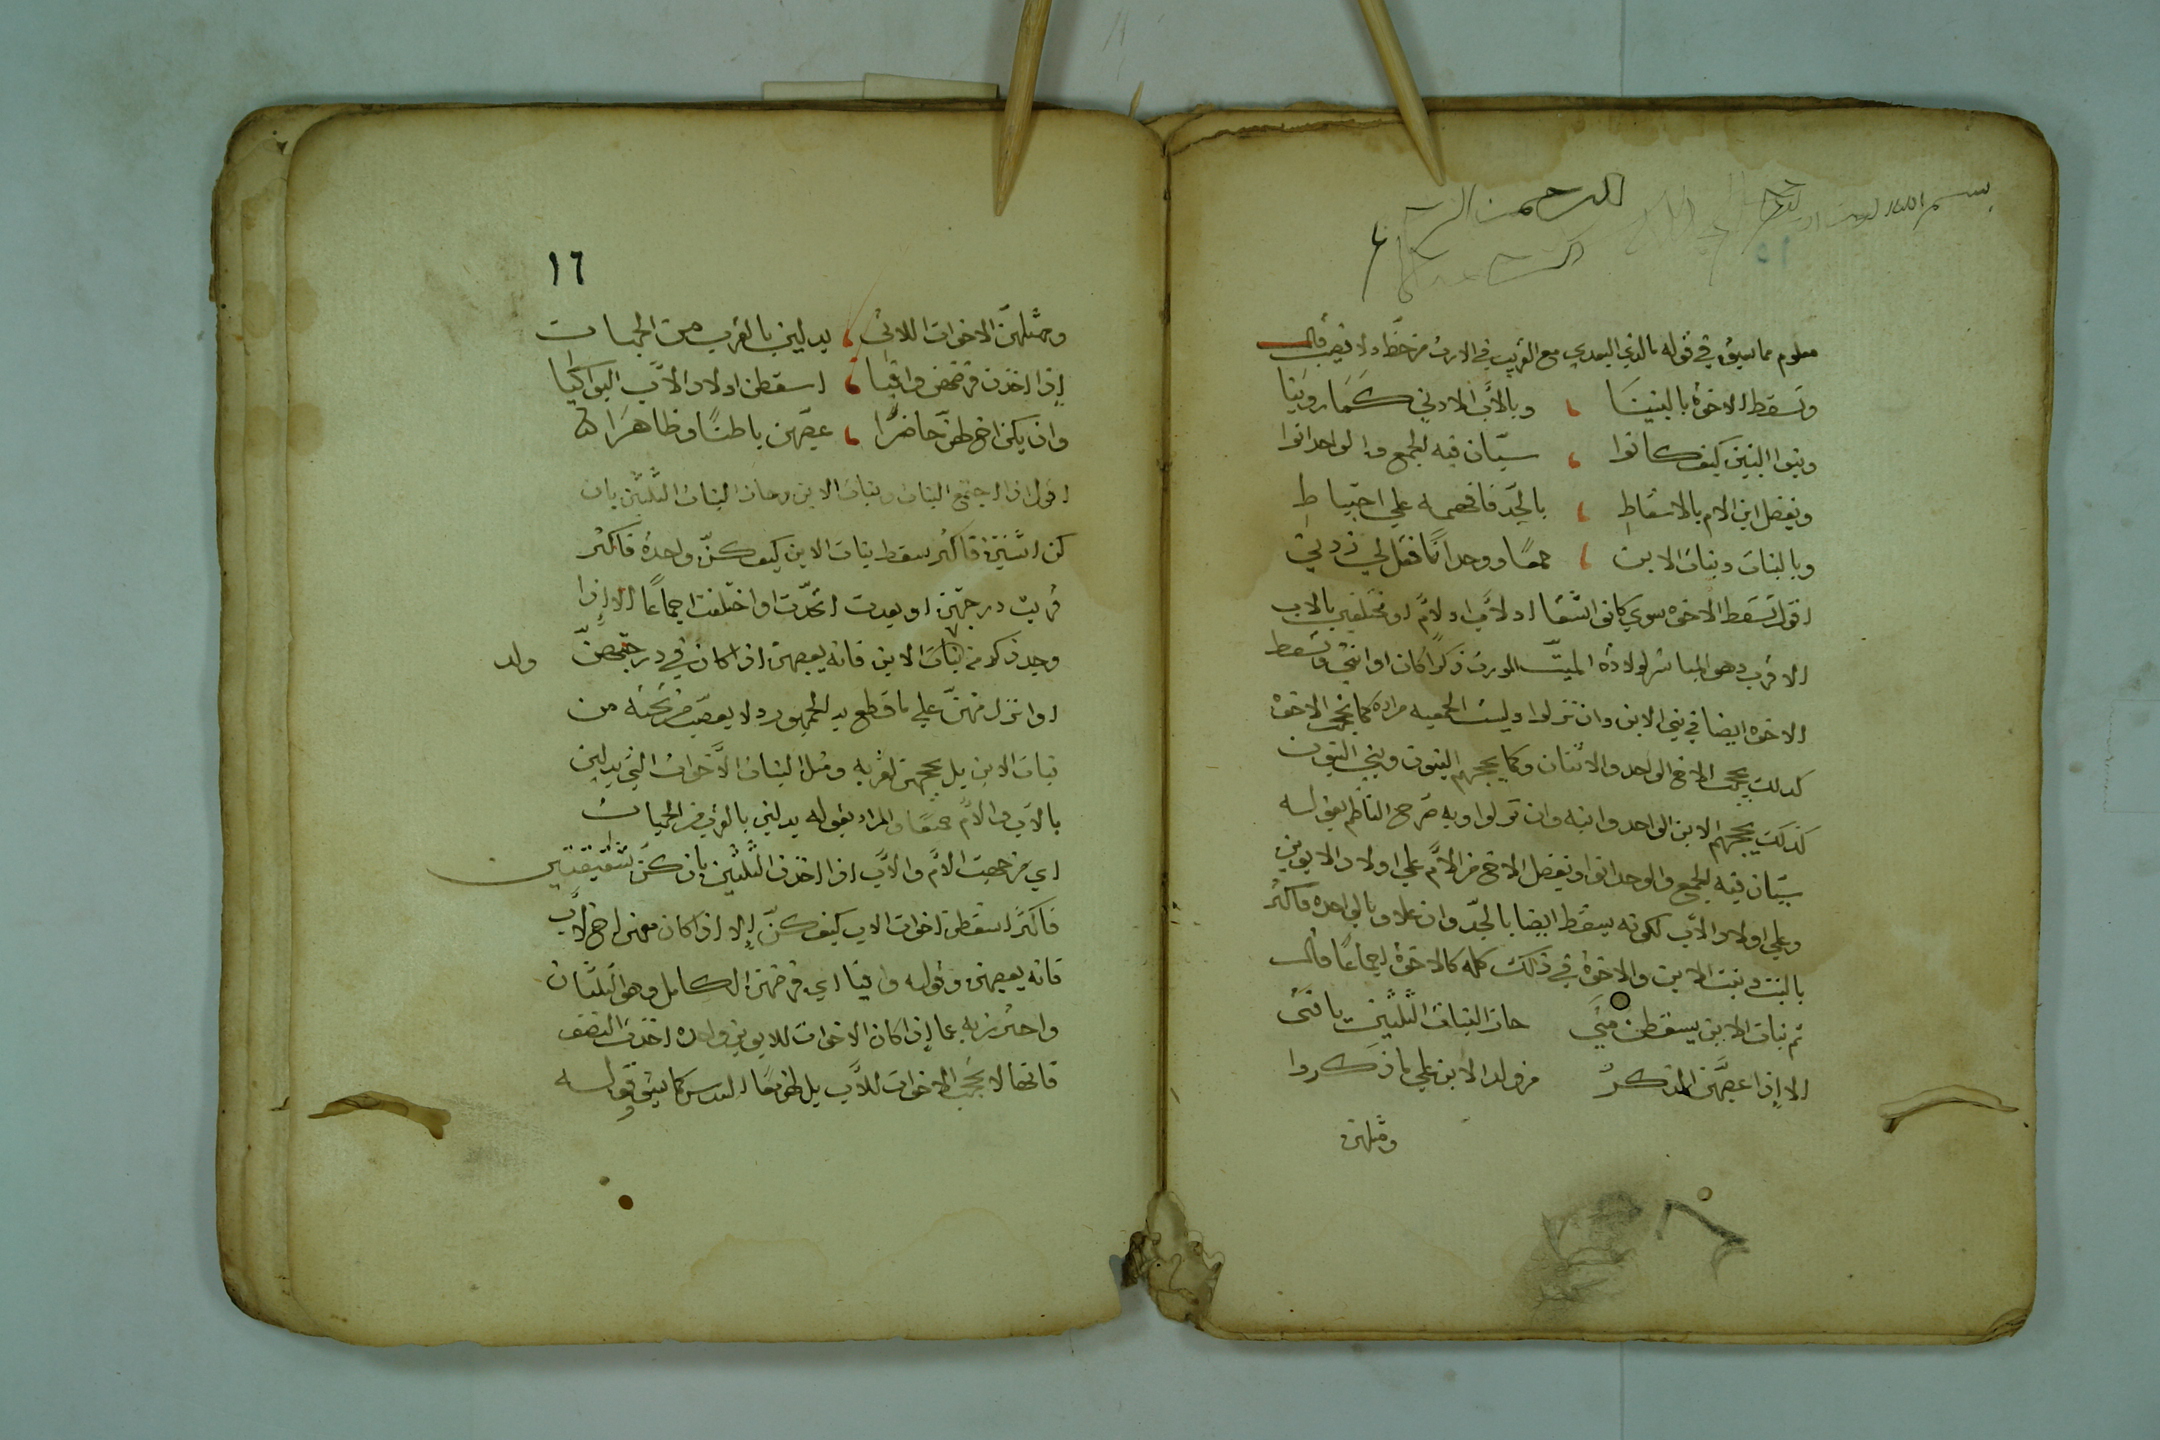 بسم الله
الرحمن الرحيم
معلوم مما سبق في قوله مالذي البعدي مع القريب في الارث من حظ ولا نصيب قال
وتسقط الاخوة بالبنينا وبالأب الادني كما روينا
وبنوا البنين كيف كانوا سيان فيه الجمع والوحدانوا
ويفضل ابن الام بالاسقاط بالجد فافهمه علي احتياط
وبالبنات وبنات الابن جمعا ووحدانا فقل لي زدني
اقول تسقط الاخوة سوي كانوا اشقا او لأب او لام او مختلفين بالاب
الاقرب وهو المباشر لولادة الميت المورث ذكرا كان او انثي وتسقط
الاخوه ايضا في بني الابن وان نزلوا وليست الجمعيه مراده كما تحجب الاخوة
كذلك يحجب الاخ الواحد والاثنان وكما يحجبهم البنون وبني البنون
كذلك يحجبهم الابن الواحد وابنه وان نزلوا وبه صرح الناظم بقوله
سيان فيه الجمع والوحدانوا ويفضل الاخ من الأم علي اولاد الابوين
وعلي اولاد الأب لكونه يسقط ايضا بالجد وان علا وبالواحده فاكثر
بالبنت وبنت الابن والاخوة في ذلك كله كالاخوة اجماعا قال
ثم بنات الابن يسقطن متي حاز البنات الثلثين يا فتي
الا إذا عصبهن الذكر من ولد الابن علي ما ذكروا
ومثلهن
١٦
ومثلهن الاخوات اللاتي يدلين بالقرب من الجهات
إذا اخذن فرضهن وافيا اسقطن اولاد الأب البواكيا
وان يكن اخ لهن حاضرا عصبهن باطنا وظاهرا
اقول اذا اجتمع البنات وبنات الابن وحاز البنات الثلثين بان
كن اثنتين فاكثر سقط بنات الابن كيف كن واحدة فاكثر
قربت درجتهن او بعدت اتحدت او اختلفت اجماعا الا إذا
وجد ذكر من بنات الابن فانه يعصبهن اذا كان في درجتهن ولد
او انزل منهن علي ما قطع به الجمهور ولا يعصب من تحته من
بنات الابن بل يحجبهن لقربه ومثل البنات الأخوات التي يدلين
بالاب والأم جميعا والمراد بقوله يدلين بالقرب من الجهات
اي من جهت الأم والأب اذا اخذن الثلثين بان كن شقيقتين
فاكثر اسقطن اخوات الاب كيف كن إلا اذا كان معهن اخ لأب
فانه يعصبهن وقوله وافيا اي فرضهن الكامل وهو الثلثان
واحترز به عما إذا كان الاخوات للابوين واحده اخذت النصف
فانها لا تحجب الاخوات للأب بل لهن معا السدس كما سبق قوله